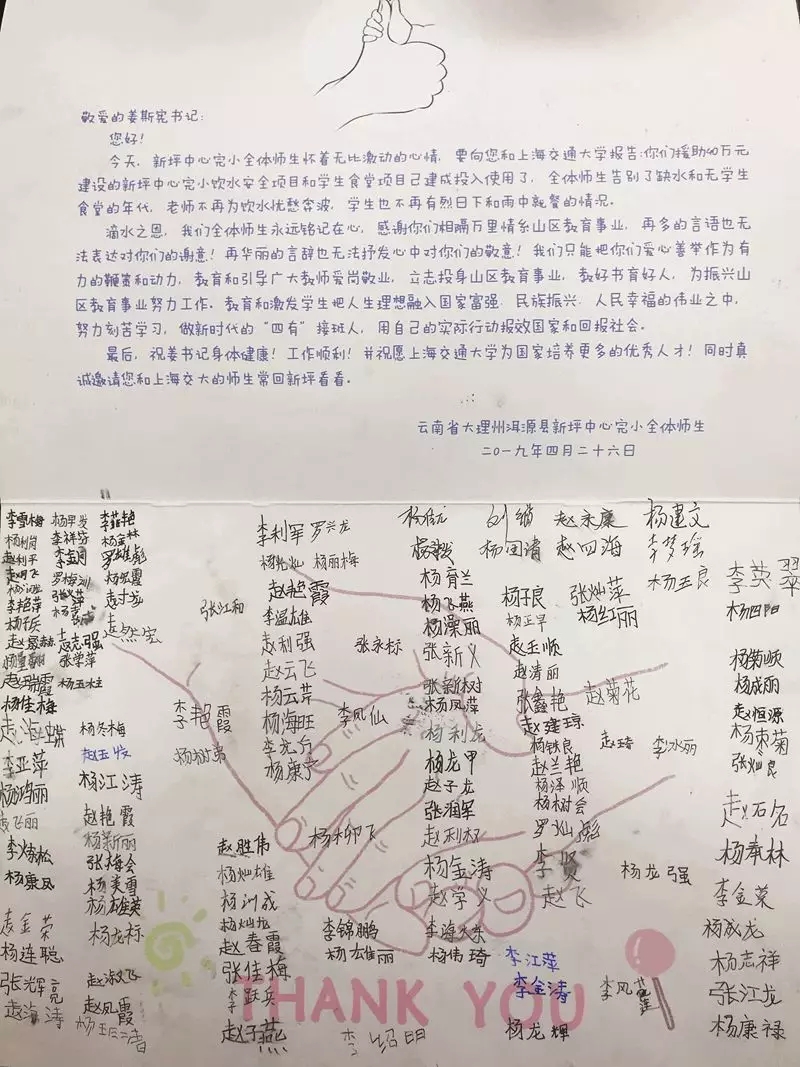 敬爱的姜斯宪书记:
您好!
今天,新坪中心完小全体师生怀着无比激动的心情,要向您和上海交通大学报告:你们援助40万元
建设的新坪中心完小饮水安全项目和学生食堂项目已建成投入使用了,全体师生告别了缺水和无学生
食堂的年代,老师不再为饮水忧愁奔波,学生也不再有烈日下和雨中就餐的情况。
滴水之恩,我们全体师生永远铭记在心,感谢你们相隔万里情系山区教育事业,再多的言语也无
法表达对你们的谢意!再华丽的言辞也无法抒发心中对你们的敬意!我们只能把你们爱心善举作为有
力的鞭策和动力,教育和引导广大教师爱岗敬业,立志投身山区教育事业,教好书育好人,为振兴山
区教育事业努力工作。教育和激发学生把人生理想融入国家富强、民族振兴、人民幸福的伟业之中,
努力刻苦学习,做新时代的“四有”接班人,用自己的实际行动报效国家和回报社会。
最后,祝姜书记身体健康!工作顺利!并祝愿上海交通大学为国家培养更多的优秀人才!同时真
诚邀请您和上海交大的师生常回新坪看看。
云南省大理州洱源县新坪中心完小全体师生
二〇一九年四月二十六日
李雪梅
李利军 罗兴龙
赵永康 杨建文
杨国清 赵四海 李梦瑶
杨丽梅
赵艳霞
杨育兰
杨子良 张灿萍
杨玉良 李英翠
张江和
李温雄
杨飞燕
杨正早 杨红丽
杨四阳
赵利强
张永标
杨澡丽
赵玉顺
赵云飞
张新义
赵清丽
杨菊顺
杨云芹
张新树
张鑫艳
赵菊花
杨成丽
杨佳梅
李艳霞
杨海旺
李凤仙
杨凤萍
赵建琼
赵恒源
赵海蝶
杨冬梅
杨利龙
杨铁良
李冰丽
杨束菊
李亚萍
杨树弟
杨康宁
杨龙甲
赵兰艳
张灿良
杨鸿丽
杨江涛
赵子龙
杨泽顺
赵飞丽
赵艳霞
张润军
杨树会
赵石名
杨新丽
赵胜伟
杨柳飞
赵利权
罗灿彪
张梅会
杨灿雄
杨金涛
李贤
杨龙强
杨奉林
杨康凤
杨美勇
杨训成
赵学义
赵飞
李金菜
袁金荣
杨龙标
杨灿龙
李锦鹏
李海东
杨成龙
杨连聪
赵春霞
杨雄丽
杨伟琦
李江萍
杨志祥
张辉亮
赵淑飞
张佳梅
李金涛
李凤莲
张江龙
赵海涛
赵凤霞
李跃兵
THANK YOU
赵子燕
李绍明
杨龙辉
杨康禄